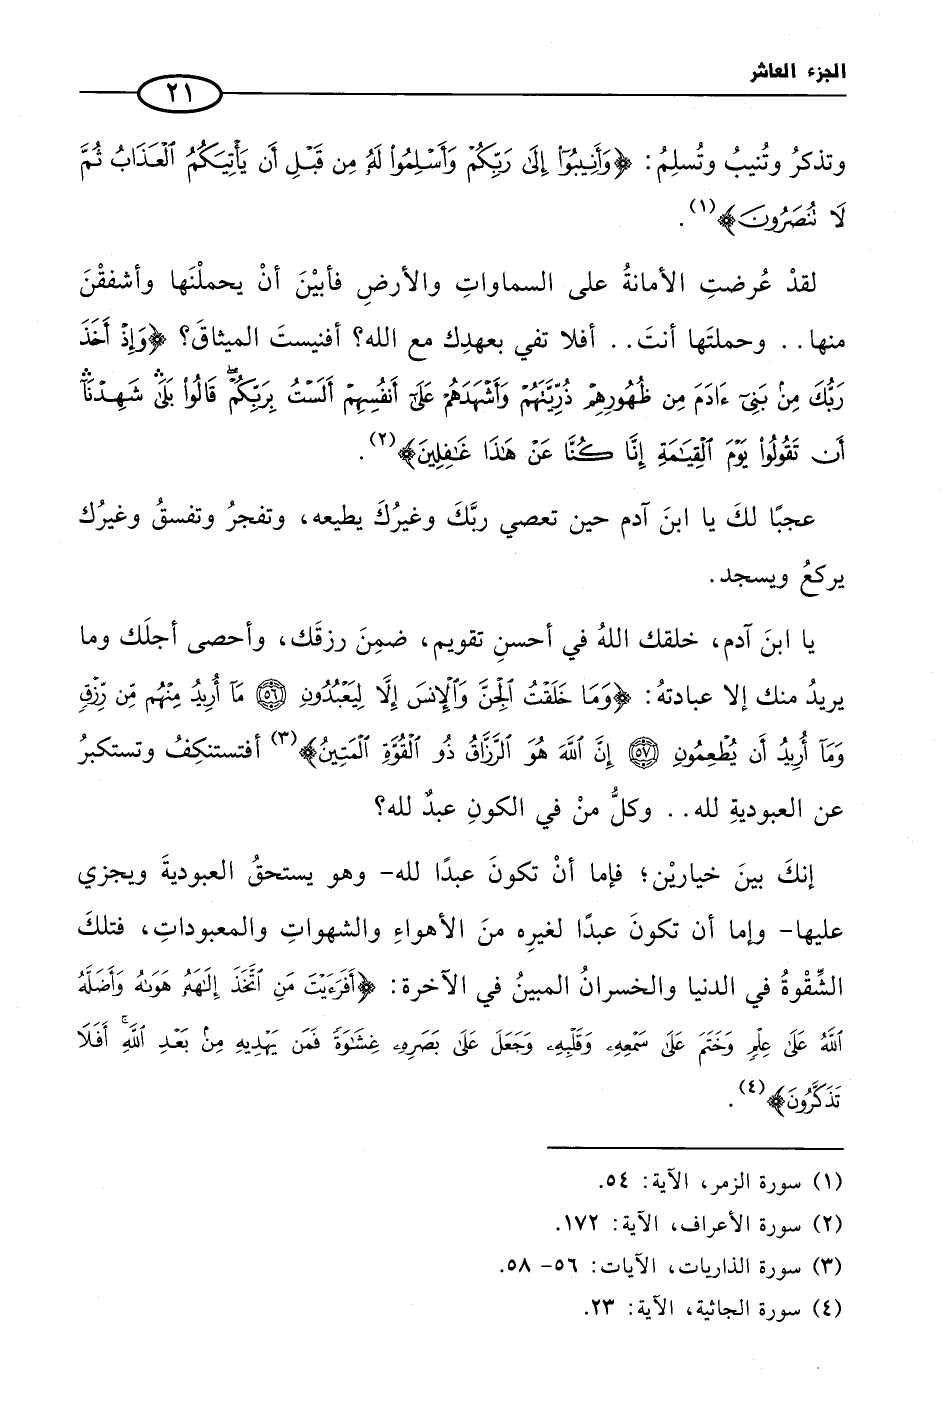 الجزء العاشر
٢١
وتذكرُ وتُنيبُ وتُسلِمُ: ﴿وَأَنِيبُوٓا۟ إِلَىٰ رَبِّكُمْ وَأَسْلِمُوا۟ لَهُۥ مِن قَبْلِ أَن يَأْتِيَكُمُ ٱلْعَذَابُ ثُمَّ
لَا تُنصَرُونَ﴾(١).
لقدْ عُرضتِ الأمانةُ على السماواتِ والأرضِ فأبيْنَ أنْ يحملْنَها وأشفقْنَ
منها.. وحملتَها أنتَ.. أفلا تفي بعهدِك مع الله؟ أفنيستَ الميثاقَ؟ ﴿وَإِذْ أَخَذَ
رَبُّكَ مِنۢ بَنِىٓ ءَادَمَ مِن ظُهُورِهِمْ ذُرِّيَّتَهُمْ وَأَشْهَدَهُمْ عَلَىٰٓ أَنفُسِهِمْ أَلَسْتُ بِرَبِّكُمْ ۖ قَالُوا۟ بَلَىٰ ۛ شَهِدْنَآ ۛ
أَن تَقُولُوا۟ يَوْمَ ٱلْقِيَـٰمَةِ إِنَّا كُنَّا عَنْ هَـٰذَا غَـٰفِلِينَ﴾(٢).
عجبًا لكَ يا ابنَ آدم حين تعصي ربَّكَ وغيرُكَ يطيعه، وتفجرُ وتفسقُ وغيرُك
يركعُ ويسجد.
يا ابنَ آدم، خلقك اللهُ في أحسنِ تقويم، ضمِنَ رزقَك، وأحصى أجلَك وما
يريدُ منك إلا عبادتهُ: ﴿وَمَا خَلَقْتُ ٱلْجِنَّ وَٱلْإِنسَ إِلَّا لِيَعْبُدُونِ ۝٥٦ مَآ أُرِيدُ مِنْهُم مِّن رِّزْقٍ
وَمَآ أُرِيدُ أَن يُطْعِمُونِ ۝٥٧ إِنَّ ٱللَّهَ هُوَ ٱلرَّزَّاقُ ذُو ٱلْقُوَّةِ ٱلْمَتِينُ﴾(٣) أفتستنكِفُ وتستكبرُ
عن العبوديةِ لله.. وكلُّ منْ في الكونِ عبدٌ لله؟
إنكَ بينَ خياريْن؛ فإما أنْ تكونَ عبدًا لله- وهو يستحقُ العبوديةَ ويجزي
عليها- وإما أن تكونَ عبدًا لغيرِه منَ الأهواءِ والشهواتِ والمعبوداتِ، فتلكَ
الشِّقْوةُ في الدنيا والخسرانُ المبينُ في الآخرة: ﴿أَفَرَءَيْتَ مَنِ ٱتَّخَذَ إِلَـٰهَهُۥ هَوَىٰهُ وَأَضَلَّهُ
ٱللَّهُ عَلَىٰ عِلْمٍ وَخَتَمَ عَلَىٰ سَمْعِهِۦ وَقَلْبِهِۦ وَجَعَلَ عَلَىٰ بَصَرِهِۦ غِشَـٰوَةً فَمَن يَهْدِيهِ مِنۢ بَعْدِ ٱللَّهِ ۚ أَفَلَا
تَذَكَّرُونَ﴾(٤).
(١) سورة الزمر، الآية: ٥٤.
(٢) سورة الأعراف، الآية: ١٧٢.
(٣) سورة الذاريات، الآيات: ٥٦- ٥٨.
(٤) سورة الجاثية، الآية: ٢٣.